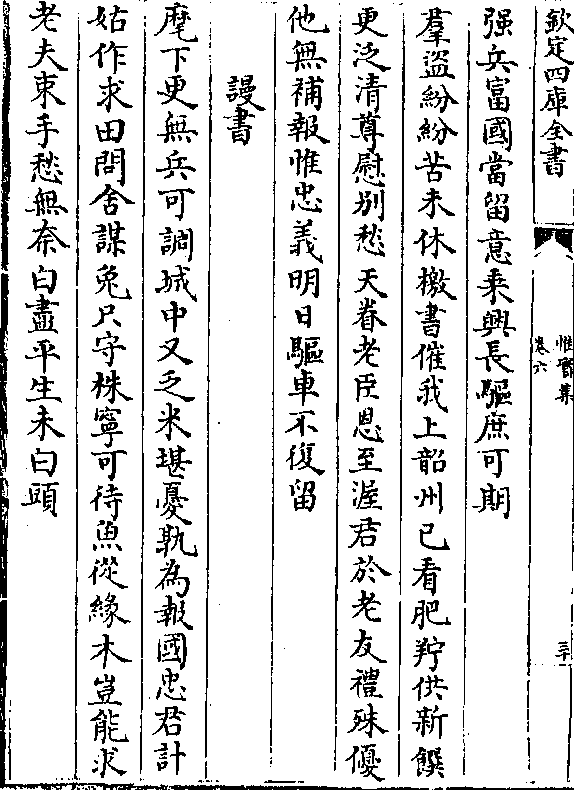 欽定四庫全書
惟實集
卷六
三十
强兵富國當留意乗興長驅庶可期
羣盜紛紛苦未休檄書催我上韶州已看肥羜供新饌
更泛清尊慰别愁天眷老臣恩至渥君於老友禮殊優
他無補報惟忠義明日驅車不復留
謾書
麾下更無兵可調城中又乏米堪憂孰為報國忠君計
姑作求田問舍謀兔只守株寧可待魚從緣木豈能求
老夫束手愁無奈白盡平生未白頭